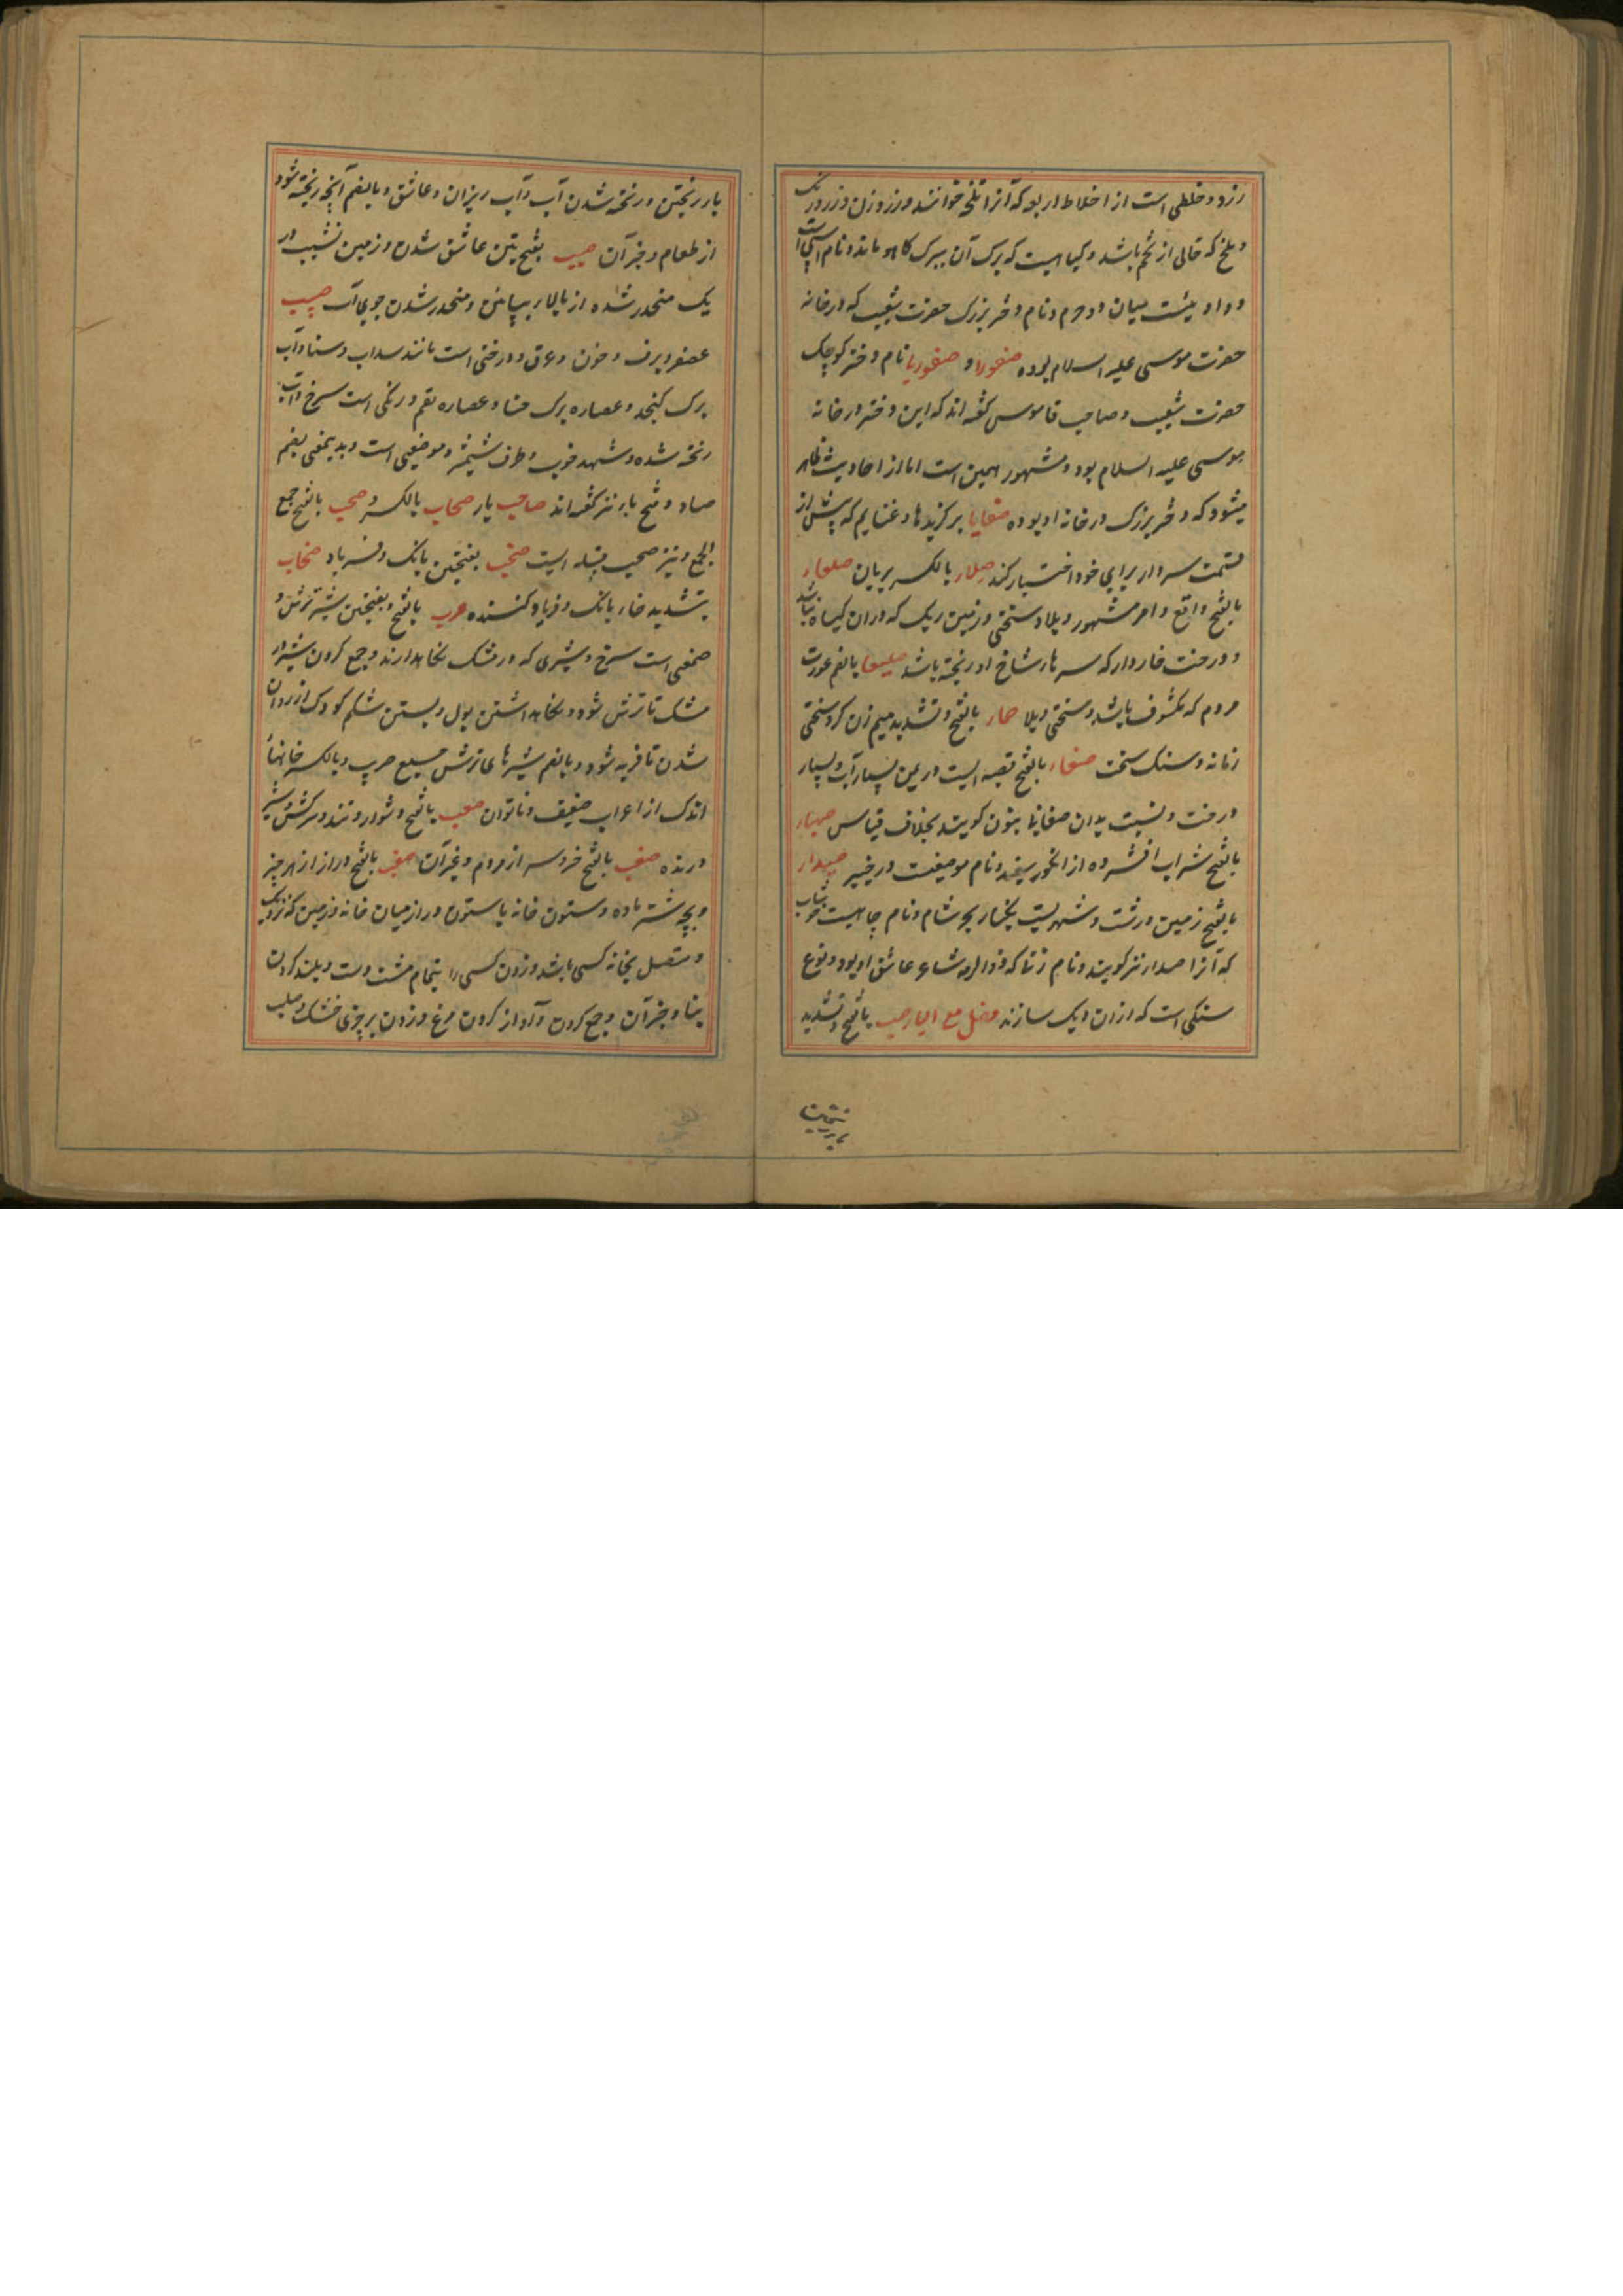 زرد و خلطی است از اخلاط اربعه که آنرا تلخه خوانند و زر و زن و زرد رنگ
و ملخ که خالی از تخم باشد و گیاهیست که برگ آن ببرگ کاهو ماند و نام اسپی است
و وادیئست میان دو حرم و نام دختر بزرگ حضرت شعیب که در خانه
حضرت موسی علیه السلام بوده صفورا و صفوریا نام دختر کوچک
حضرت شعیب و صاحب قاموس گفته اند که این دختر در خانه
موسی علیه السلام بود و مشهور همین است اما از احادیث ظاهر
میشود که دختر بزرگ در خانه او بوده صفایا برگزیدها و غنایم که پیش از
قسمت سردار برای خود اختیار کند صلاء بالکسر بریان صلعاء
بالفتح واقع و امر مشهور و بلا و سختی و زمین ریگ که دران گیاه نباشد
و درخت خاردار که سرهاء شاخ او ریخته باشد صلیعا بالضم عورت
مردم که مکشوف باشد و سختی و بلا صماء بالفتح و تشدید میم زن کر و سختی
زمانه و سنگ سخت صنعاء بالفتح قصبه ایست در یمن بسیار آب و بسیار
درخت و نسبت بدان صنعانیا بنون گویند بخلاف قیاس صهباء
بالفتح شراب افشرده از انگور سفید و نام موضعیست در خیبر صیداء
بالفتح زمین درشت و شهریست بکنار بحر شام و نام چاهیست خوشاب
که آنرا صداء نیز گویند و نام زنا که ذو الرمه شاعر عاشق او بود و نوع
سنگی است که ازان دیگ سازند فصل مع الباء صب بالفتح و تشدید
باء ریختن و ریخته شدن آب و آب ریزان و عاشق و بالضم آنچه ریخته شود
از طعام و جز آن صبب بفتحتین عاشق شدن و زمین نشیب در
یک منحدر شده از بالا ببیابان و منحدر شدن جوی آب صبیب
عصفر و برف و خون و عرق و درختی است مانند سداب و سنا و آب
برگ کنجد و عصاره برگ حنا و عصاره بقم و رنگی است سرخ و آب
ریخته شده و شهد خوب و طرف شمشیر و موضعی است و بدیمعنی بضم
صاد و فتح باء نیز گفته اند صاحب یار صحاب بالکسر و صحب بالفتح جمع
الجمع و نیز صحب قبیله ایست صخب بفتحتین بانگ و فریاد صخاب
بتشدید خاء بانگ و فریاد کننده صرب بالفتح و بفتحتین شیر ترش و
صمغی است سرخ و شیری که در مشک نگاهدارند و جمع کردن شیر در
مشک تا ترش شود و نگاهداشتن بول و بستن شکم کودک از روان
شدن تا فربه شود و بالضم شیرهای ترش جمع صریب و بالکسر خانهاء
اندک از اعراب ضعیف و ناتوان صعب بالفتح دشوار و تند و سرکش و شیر
درنده صقب بالفتح فرو سر از مردم و غیر آن صقب بالفتح دراز از هر چیز
و بچه شتر ماده و ستون خانه یا ستون دراز میان خانه و زمین که نزدیک
و متصل بخانه کسی باشد و زدن کسی را بتمام مشت دست و بلند کردن
بنا و جز آن و جمع کردن و آواز کردن مرغ و زدن بر چیزی خشک و صلب